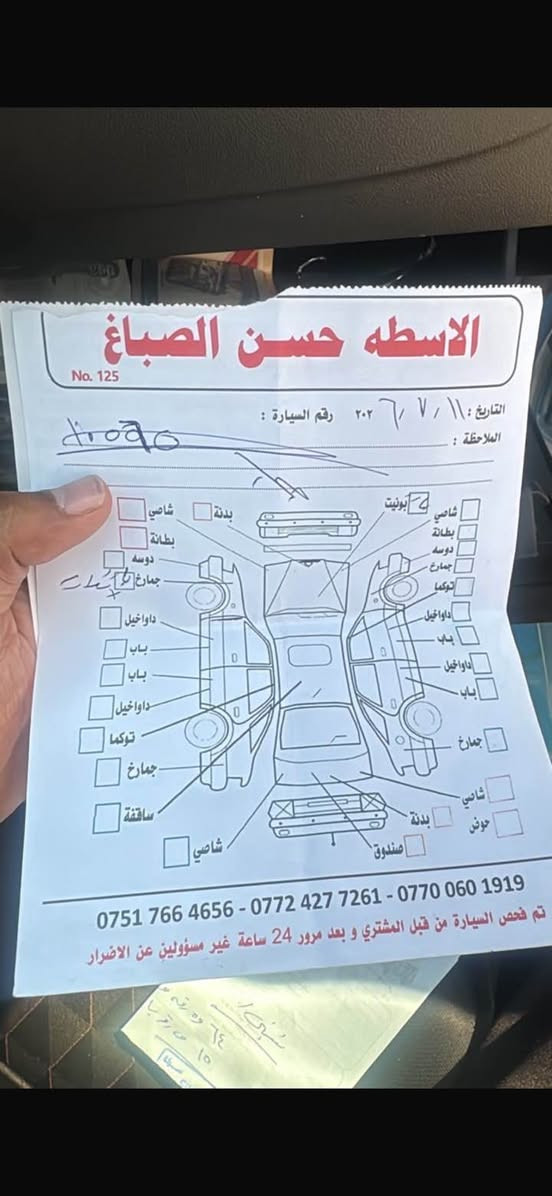 الاسطه حسن الصباغ
No. 125
التاريخ : ١١ / ٧ / ٢٠٢٦ رقم السيارة :
الملاحظة :
شاصي بدنة بونيت شاصي
بطانة بطانة
دوسه دوسه
جمارخ جمارخ
توكما
داواخيل داواخيل
باب باب
باب داواخيل
داواخيل باب
توكما
جمارخ جمارخ
ساقفة شاصي
بدنة حوض
شاصي صندوق
0751 766 4656 - 0772 427 7261 - 0770 060 1919
تم فحص السيارة من قبل المشتري و بعد مرور 24 ساعة غير مسؤولين عن الاضرار